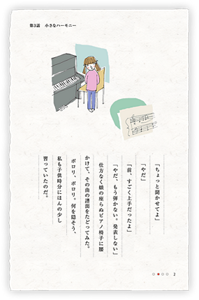 第2話　小さなハーモニー
「ちょっと聞かせてよ」
「やだ」
「前、すごく上手だったよ」
「やだ、もう弾かない。発表しない」
仕方なく娘の座らぬピアノ椅子に腰
かけて、その曲の譜面をたどってみた。
ポロリ、ポロリ。何を隠そう、
私も子供時分にほんの少し
習っていたのだ。
2